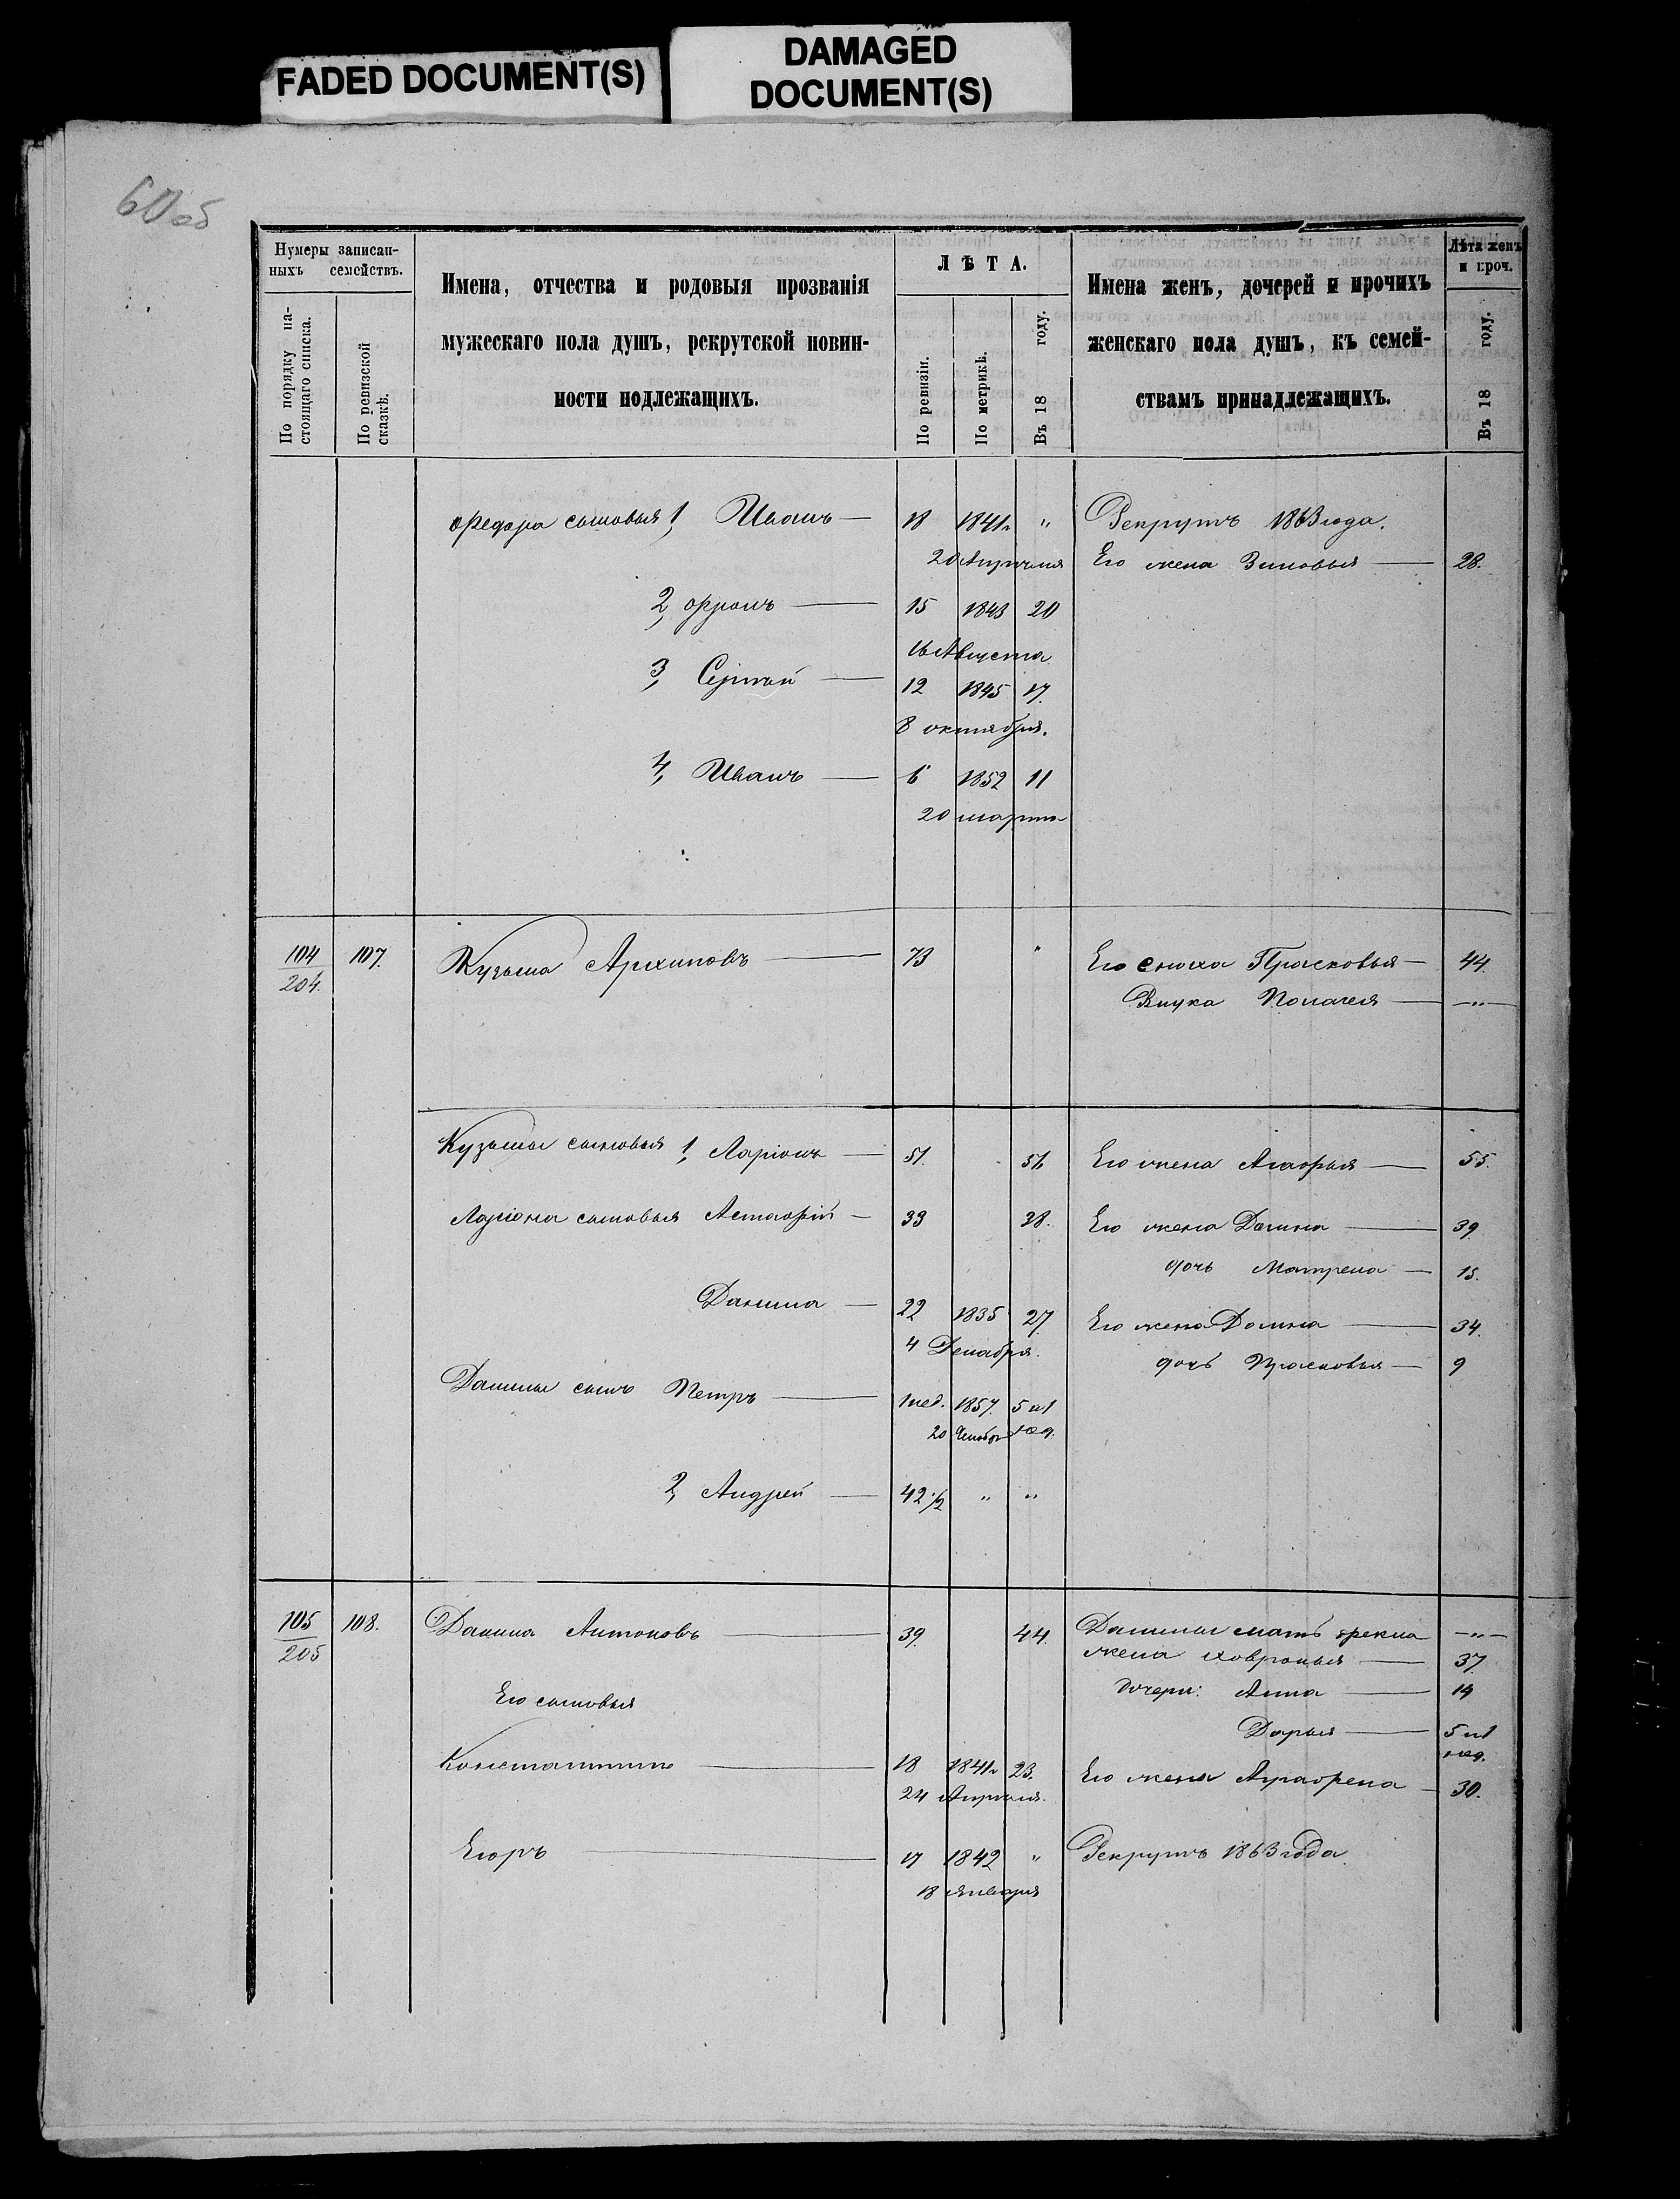 FADED DOCUMENT(S)
DAMAGED
DOCUMENT(S)
60об
Нумеры записан-
ныхъ семействъ.
По порядку на-
стоящаго списка.
По ревизской
сказкѣ.
Имена, отчества и родовыя прозванія
мужескаго пола душъ, рекрутской повин-
ности подлежащихъ.
ЛѢТА.
По ревизіи.
По метрикѣ.
Въ 18 году.
Имена женъ, дочерей и прочихъ
женскаго пола душъ, къ семей-
ствамъ принадлежащихъ.
Лѣта женъ
и проч.
Въ 18 году.
Федора сыновья 1, Иванъ — 18 1841г. " Рекрутъ 1863 года.
20 Апрѣля Его жена Зиновья — 28.
2, Фролъ — 15 1843 20
16 Августа
3, Сергѣй — 12 1845 17.
8 октября.
4, Иванъ — 6 1852 11
20 марта
104 107. Кузьма Архиповъ — 73 " Его сноха Прасковья — 44.
204. Внука Полагея — "
Кузьмы сыновья 1, Ларіонъ — 51. 56 Его жена Агафья — 55.
Ларіона сыновья Астафій — 33 38. Его жена Домна — 39.
дочь Матрена — 15.
Данила — 22 1835 27. Его жена Домна — 34.
4 Декабря. дочь Прасковья — 9
Данилы сынъ Петръ — 1 нед. 1857. 5 и 1
20 Декабр нед.
2, Андрей — 42 1/2 " "
105 108. Данила Антоновъ — 39. 44. Данилы мать Фекла — "
205 жена Ховронья — 37.
Его сыновья дочери: Анна — 14
Дарья — 5 и 1
нед.
Константинъ — 18 1841г. 23. Его жена Аграфена — 30.
24 Апрѣля.
Егоръ — 17 1842 " Рекрутъ 1863 года.
18 Января